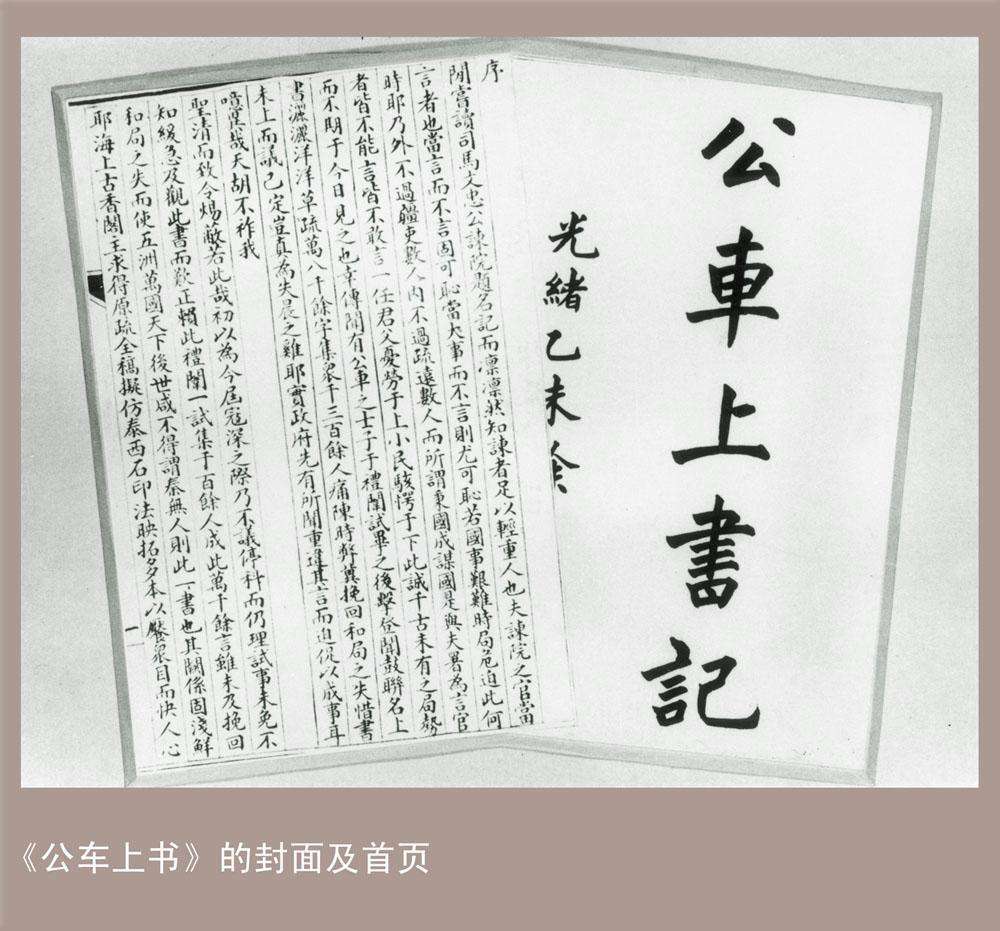 公車上書記
光緒乙未仝
序
聞嘗讀司馬文忠公諫院題名記而凜凜然知諫者足以輕重人也夫諫院之官當
言者也當言而不言固可恥當大事而不言則尤可恥若國事艱難時局危迫此何
時耶乃外不過疆吏數人內不過疏遠數人而所謂秉國成謀國是與夫署為言官
者皆不能言皆不敢言一任君父憂勞于上小民駭愕于下此誠千古未有之局勢
而不期于今日見之也幸傳聞有公車之士子于禮闈試畢之後擊登聞鼓聯名上
書灑灑洋洋草疏萬八千餘字集眾千三百餘人痛陳時弊冀挽回和局之失惜書
未上而議已定豈真為失晨之雞耶實政府先有所聞重違其言而迫促以成事耳
噫豈哉天胡不祚我
聖清而致令煬蔽若此哉初以為今屆寇深之際乃不議停科而仍理試事未免不
知緩急及觀此書而歎正賴此禮闈一試集千百餘人成此萬千餘言雖未及挽回
和局之失而使五洲萬國天下後世咸不得謂秦無人則此一書也其關係固淺鮮
耶海上古香閣主求得原疏全稿擬仿泰西石印法映拓多本以饜眾目而快人心
一
《公车上书》的封面及首页